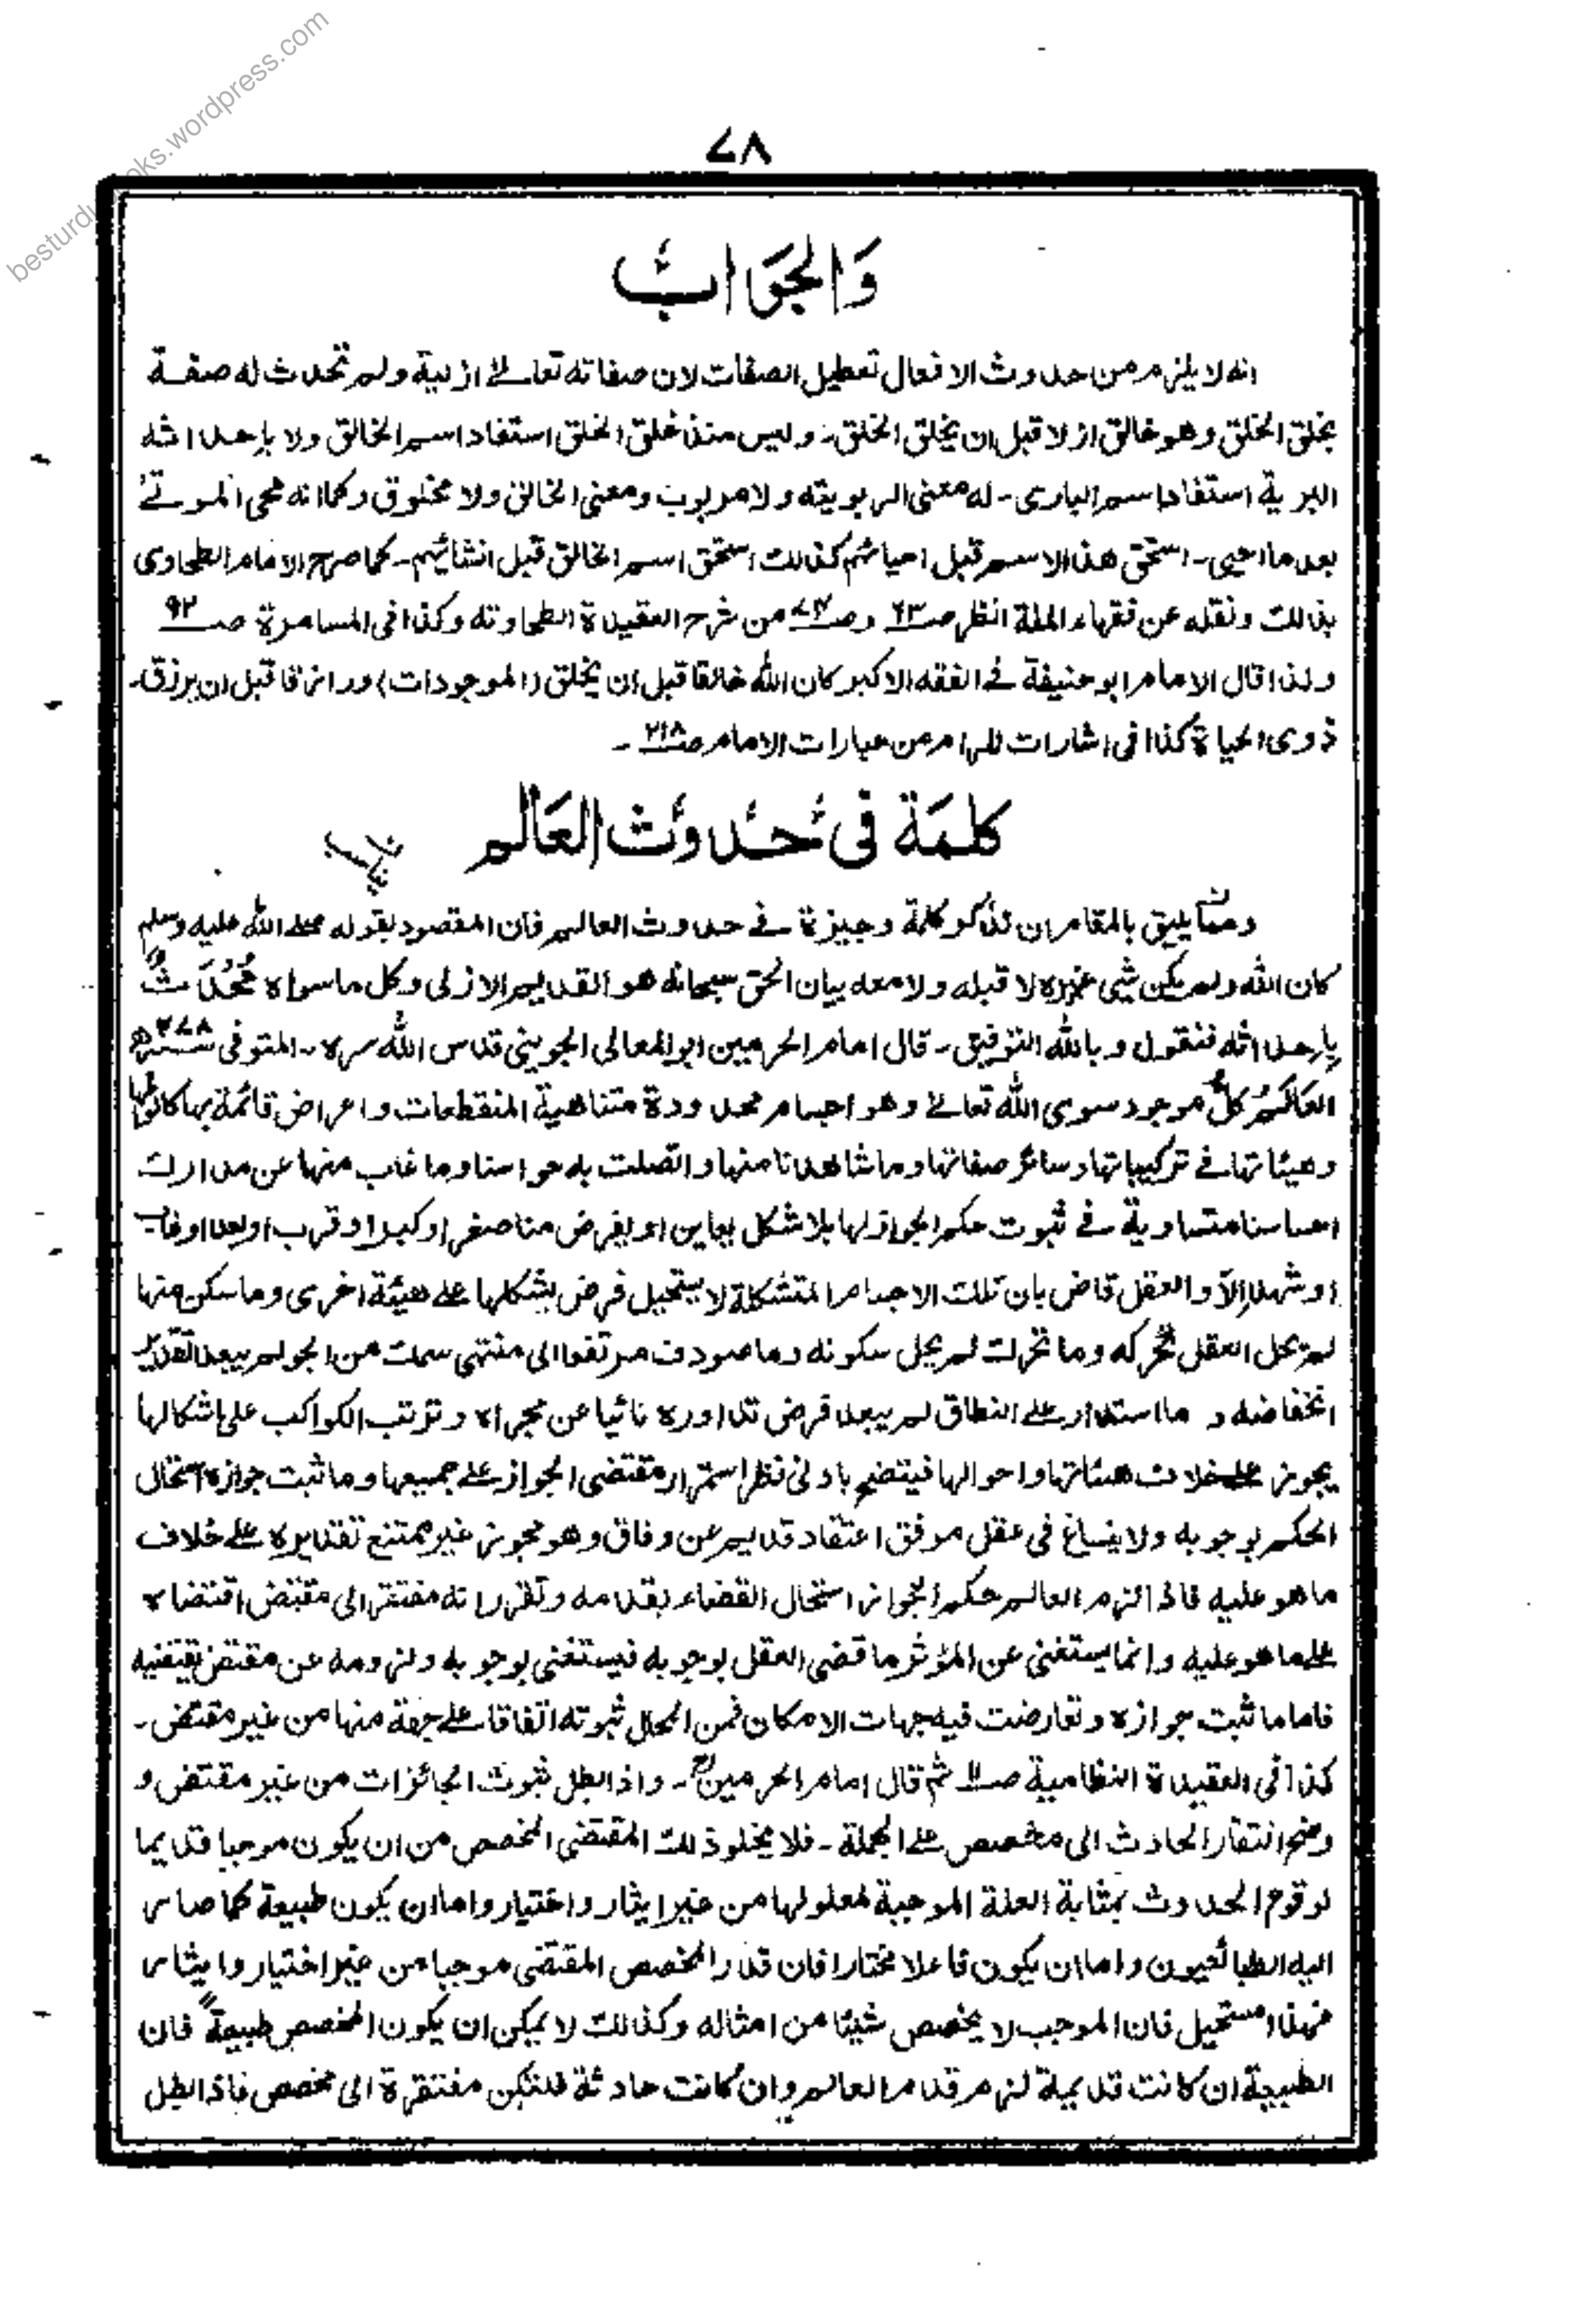 besturdubooks.wordpress.com
٧٨
وَالجَوَابُ
انه لا يلزم من حدوث الافعال تعطيل الصفات لان صفاته تعالىٰ ازلية ولم تحدث له صفة
بخلق الخلق وهو خالق ازلا قبل ان يخلق الخلق۔ وليس منذ خلق الخلق استفاد اسم الخالق ولا باحداثه
البرية استفاد اسم البارى۔ له معنى الربوبية ولا مربوب ومعنى الخالق ولا مخلوق وكما انه محى الموتىٰ
بعد ما احيى۔ استحق هذا الاسم قبل احيائهم كذالك استحق اسم الخالق قبل انشائهم۔ كما صرح الامام الطحاوى
بذالك ونقله عن فقهاء الملة انظر صـ٦٣ وصـ٧٤ من شرح العقيدة الطحاوية وكذا فى المسامرة صـ٩٢
ولذا قال الامام ابو حنيفة فى الفقه الاكبر كان الله خالقا قبل ان يخلق (الموجودات) ورازقا قبل ان يرزق۔
ذوى الحياة كذا فى اشارات المرام من عبارات الامام صـ٢١٨ ۔
كلمَة فىْ حُدوْث العَالم
ومما يليق بالمقام ان نذكر كلمة وجيزة فى حدوث العالم فان المقصود بقوله صلى الله عليه وسلم
كان الله ولم يكن شيئ غيره لا قبله ولا معه بيان الحق سبحانه هو القديم الازلى وكل ما سواه مُحْدَثٌ
باحداثه فنقول وبالله التوفيق۔ قال امام الحرمين ابو المعالى الجوينى قدس الله سره۔ المتوفى سنة ٤٧٨ھ
العالم كلُّ موجود سوى الله تعالىٰ وهو اجسام محدودة متناهية المنقطعات واعراض قائمة بها كالوانها
وهيئاتها فى تركيباتها وسائر صفاتها وما شاهدنا منها واتصلت به حواسنا وما غاب منها عن مدارك
احساسنا متساوية فى ثبوت حكم الجواز لها بلا شكل يعاين او يفرض منا صغر او كبر او قرب او بعد او غاب
او شهد الا والعقل قاض بان تلك الاجسام المتشكلة لا يستحيل فرض بشكلها على هيئة اخرى وما سكن منها
لم يحل العقل تحركه وما تحرك لم يحل سكونه وما صودف مرتفعا الى منتهى سمت من الجو لم يبعد تقدير
انخفاضه و ما استدار على النطاق لم يبعد فرض تداوره نائيا عن مجراه وترتب الكواكب على اشكالها
يجوز على خلاف هيئاتها واحوالها فيتضح بادنى نظر استمرار مقتضى الجواز على جميعها وما ثبت جوازه استحال
الحكم بوجوبه ولا ينساغ فى عقل موفق اعتقاد قديم عن وفاق وهو مجوز غير ممتنع تقديره على خلاف
ما هو عليه فاذا لزم العالم حكم الجواز استحال القضاء بقدمه وتقرر انه مفتقر الى مقتض اقتضاه
على ما هو عليه وانما يستغنى عن المؤثر ما قضى العقل بوجوبه فيستغنى بوجوبه ولزومه عن مقتض يقتضيه
فاما ما ثبت جوازه وتعارضت فيه جهات الامكان فمن المحال ثبوته اتفاقا على جهة منها من غير مقتض۔
كذا فى العقيدة النظامية صـ١١ ثم قال امام الحرمينؒ۔ واذا بطل ثبوت الجائزات من غير مقتض و
وضح افتقار الحادث الى مخصص على الجملة۔ فلا يخلو ذلك المقتضى المخصص من ان يكون موجبا قديما
لوقوع الحدوث بمثابة العلة الموجبة لمعلولها من غير ايثار واختيار واما ان يكون طبيعة كما صار
اليه الطبائعيون واما ان يكون فاعلا مختارا فان قدر المخصص المقتضى موجبا من غير اختيار وايثار
فهذا مستحيل فان الموجب لا يخصص شيئا من امثاله وكذالك لا يمكن ان يكون المخصص طبيعةً فان
الطبيعة ان كانت قديمة لزم قدم العالم وان كانت حادثة فلتكن مفتقرة الى مخصص فاذا بطل